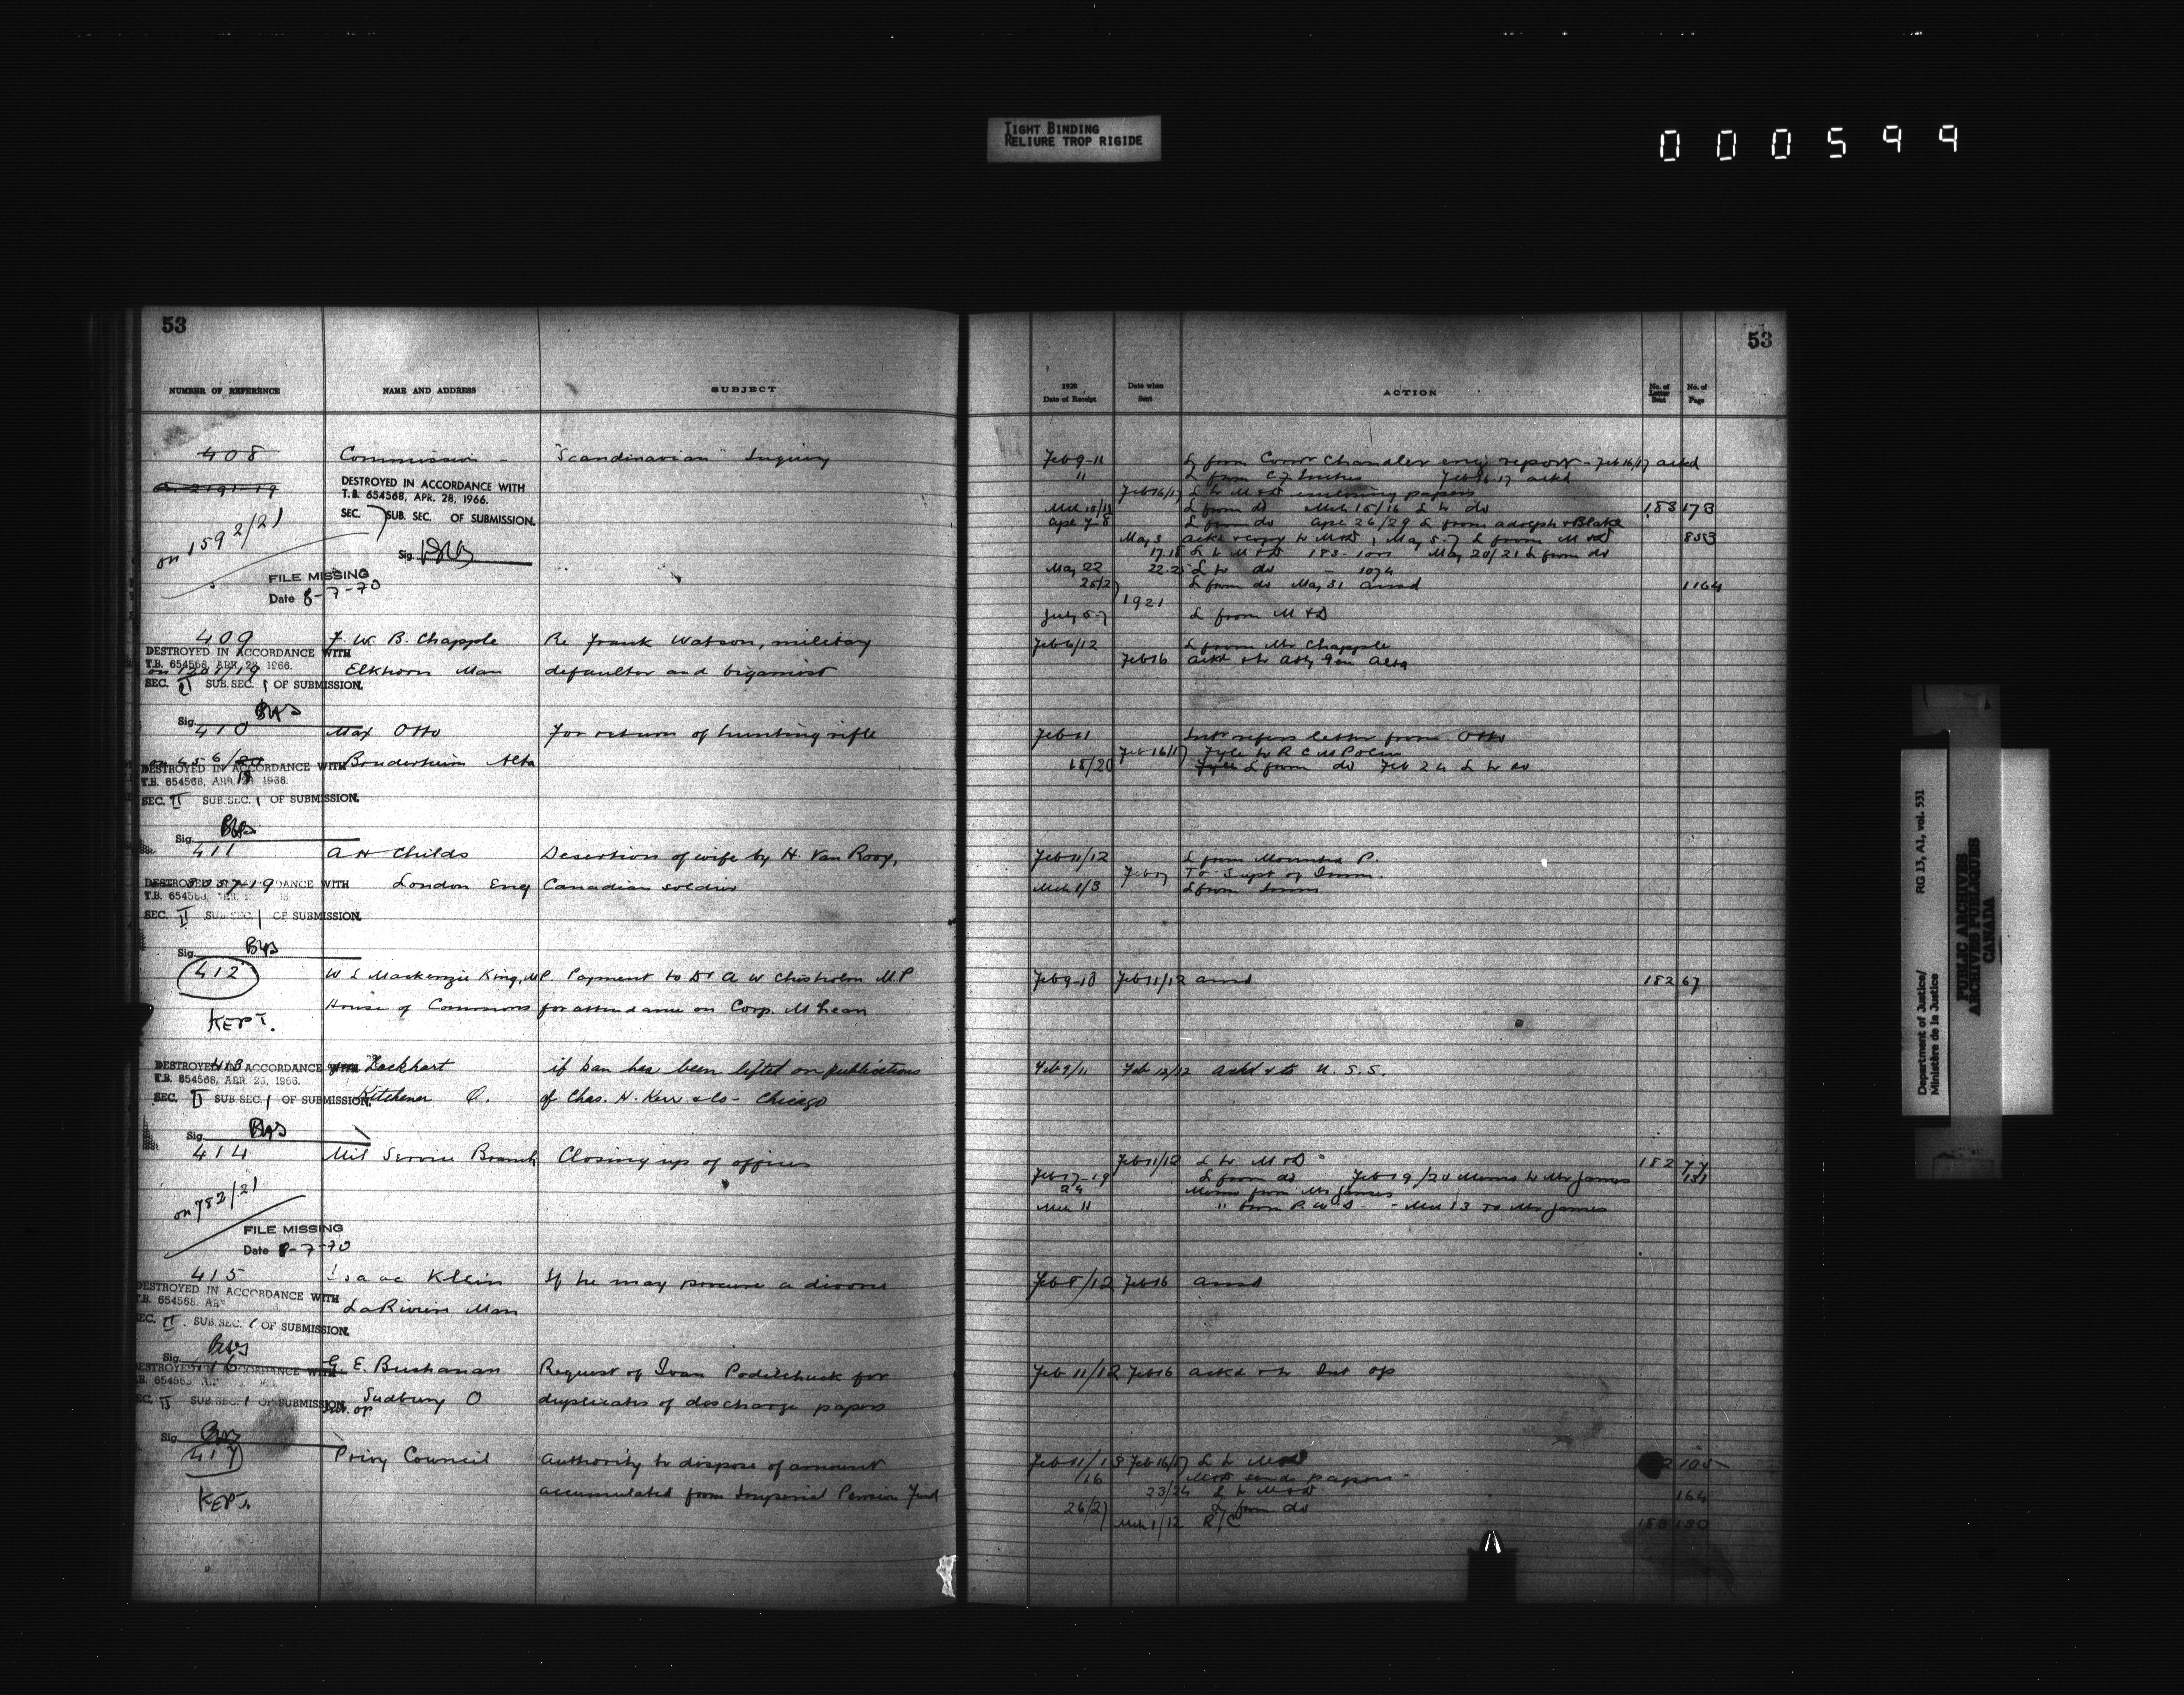 TIGHT BINDING
RELIURE TROP RIGIDE
000599
53
NUMBER OF REFERENCE NAME AND ADDRESS SUBJECT
408 Commission - "Scandinavian" Inquiry
DESTROYED IN ACCORDANCE WITH
T.B. 654568, APR. 28, 1966.
SEC. SUB. SEC. OF SUBMISSION.
on 1592/21
Sig.
FILE MISSING
Date 8-7-70
409 F. W. B. Chapple Re Frank Watson, military
DESTROYED IN ACCORDANCE WITH
T.B. 654568, APR. 28, 1966.
Elkhorn Man defaulter and bigamist
SEC. II SUB. SEC. 1 OF SUBMISSION.
Sig.
410 Max Otto For return of hunting rifle
Bruderheim Alta
DESTROYED IN ACCORDANCE WITH
T.B. 654568, APR. 28 1966.
SEC. II SUB. SEC. 1 OF SUBMISSION.
Sig.
411 A H Childs Desertion of wife by H. Van Rooy,
DESTROYED IN ACCORDANCE WITH London Eng Canadian soldier
SEC. II SUB. SEC. 1 OF SUBMISSION.
Sig.
412 W L Mackenzie King, M.P. Payment to Dr A W Chisholm M.P
House of Commons for attendance on Corp. McLean
KEPT.
413 Lockhart if ban has been lifted on publications
DESTROYED IN ACCORDANCE WITH
T.B. 654568, APR. 28, 1966.
Kitchener O. of Chas. H. Kerr & Co - Chicago
SEC. II SUB. SEC. 1 OF SUBMISSION.
Sig.
414 Mil Service Branch Closing up of offices
on 782/21
FILE MISSING
Date 8-7-70
415 Isaac Klein If he may procure a divorce
DESTROYED IN ACCORDANCE WITH
T.B. 654568,
LaRiviere Man
SEC. II. SUB. SEC. 1 OF SUBMISSION.
Sig.
416 G. E. Buchanan Request of Ivan Podilchuck for
DESTROYED IN ACCORDANCE WITH
Sudbury O duplicates of discharge papers
SEC. II SUB. SEC. 1 OF SUBMISSION
Sig.
417 Privy Council Authority to dispose of amount
accumulated from Imperial Pension Fund
KEPT.
53
1920
Date of Receipt Date when Sent ACTION No. of Letter Sent No. of Page
Feb 9-11 L from Comr Chandler encg report - Feb 16/17 ackd
11 L from Feb 16-17 ackd
Feb 16/17 L to M&D enclosing papers
L from do Mch 15/16 L to do 183 173
Apl 7-8 L from do Apl 26/29 L from Adolph & Blake
May 3 ackd & copy to M&D, May 5-7 L from M&D 853
17.18 L to M&D 183-1001 May 20/21 L from do
May 22 22.25 L to do - 1074
25/27 L from do May 31 ansd 1164
1921
July 5-7 L from M&D
Feb 6/12 L from Mr Chapple
Feb 16 ackd & to Atty Gen Alta
Feb 11 refers letter from Otto
Feb 16/17 Fyle to R C M Police
18/20 L from do Feb 24 L to do
Feb 11/12 L from Mounted P.
Feb 17 To Supt of Imm.
Mch 1/3 L from Imm
Feb 9-10 Feb 11/12 ansd 182 67
Feb 9/11 Feb 12/12 ackd & to U.S.S.
Feb 11/12 L to M&D 182 77
Feb 17-19 L from do Feb 19/20 Memo to Mr James 131
24 Memo from Mr James
Mch 11 " from - Mch 13 To Mr James
Feb 8/12 Feb 16 ansd
Feb 11/12 Feb 16 ackd & to Int Op
Feb 11/13 Feb 16/17 L to M&D 105
/16 M&D send papers -
23/24 L to M&D 164
26/27 L from do
Mch 1/12. R/C 183 130
Department of Justice/ RG 13, A1, vol. 531
Ministère de la Justice
PUBLIC ARCHIVES
ARCHIVES PUBLIQUES
CANADA